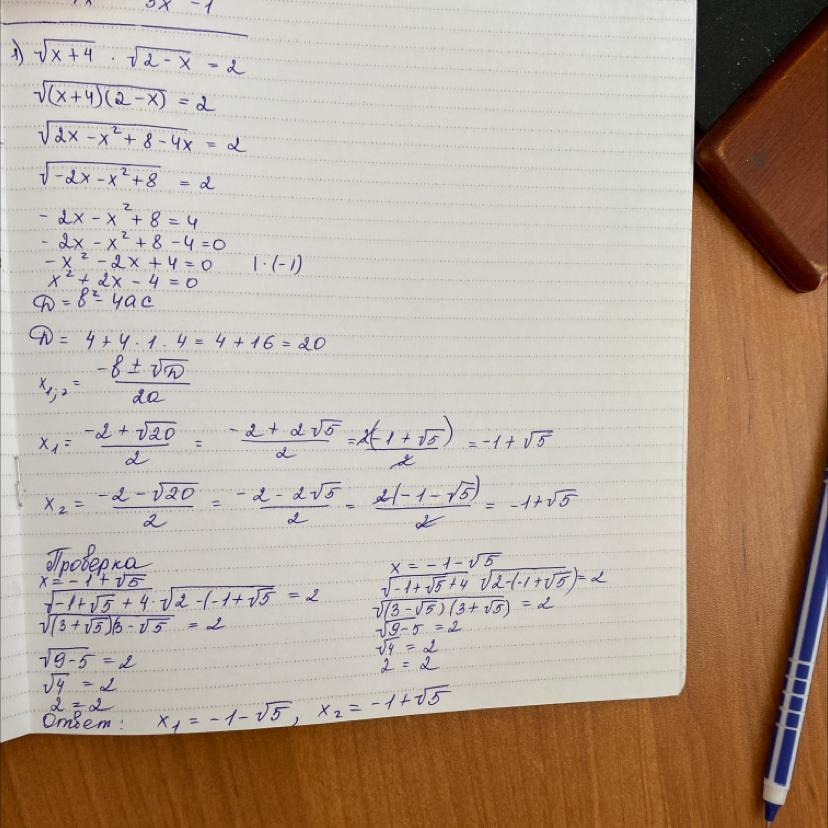 5x - 1
1) √(x+4) · √(2-x) = 2
√((x+4)(2-x)) = 2
√(2x - x² + 8 - 4x) = 2
√(-2x - x² + 8) = 2
- 2x - x² + 8 = 4
- 2x - x² + 8 - 4 = 0
- x² - 2x + 4 = 0 | · (-1)
x² + 2x - 4 = 0
D = b² - 4ac
D = 4 + 4 · 1 · 4 = 4 + 16 = 20
x₁;₂ = (-b ± √D)/2a
x₁ = (-2 + √20)/2 = (-2 + 2√5)/2 = 2(-1 + √5)/2 = -1 + √5
x₂ = (-2 - √20)/2 = (-2 - 2√5)/2 = 2(-1 - √5)/2 = -1 + √5
Проверка
x = -1 + √5
√(-1+√5 + 4) · √(2 - (-1 + √5)) = 2
√((3 + √5)(3 - √5)) = 2
√(9 - 5) = 2
√4 = 2
2 = 2
x = -1 - √5
√(-1 + √5 + 4) √(2 - (-1 + √5)) = 2
√((3 - √5)(3 + √5)) = 2
√(9 - 5) = 2
√4 = 2
2 = 2
Ответ: x₁ = -1 - √5, x₂ = -1 + √5